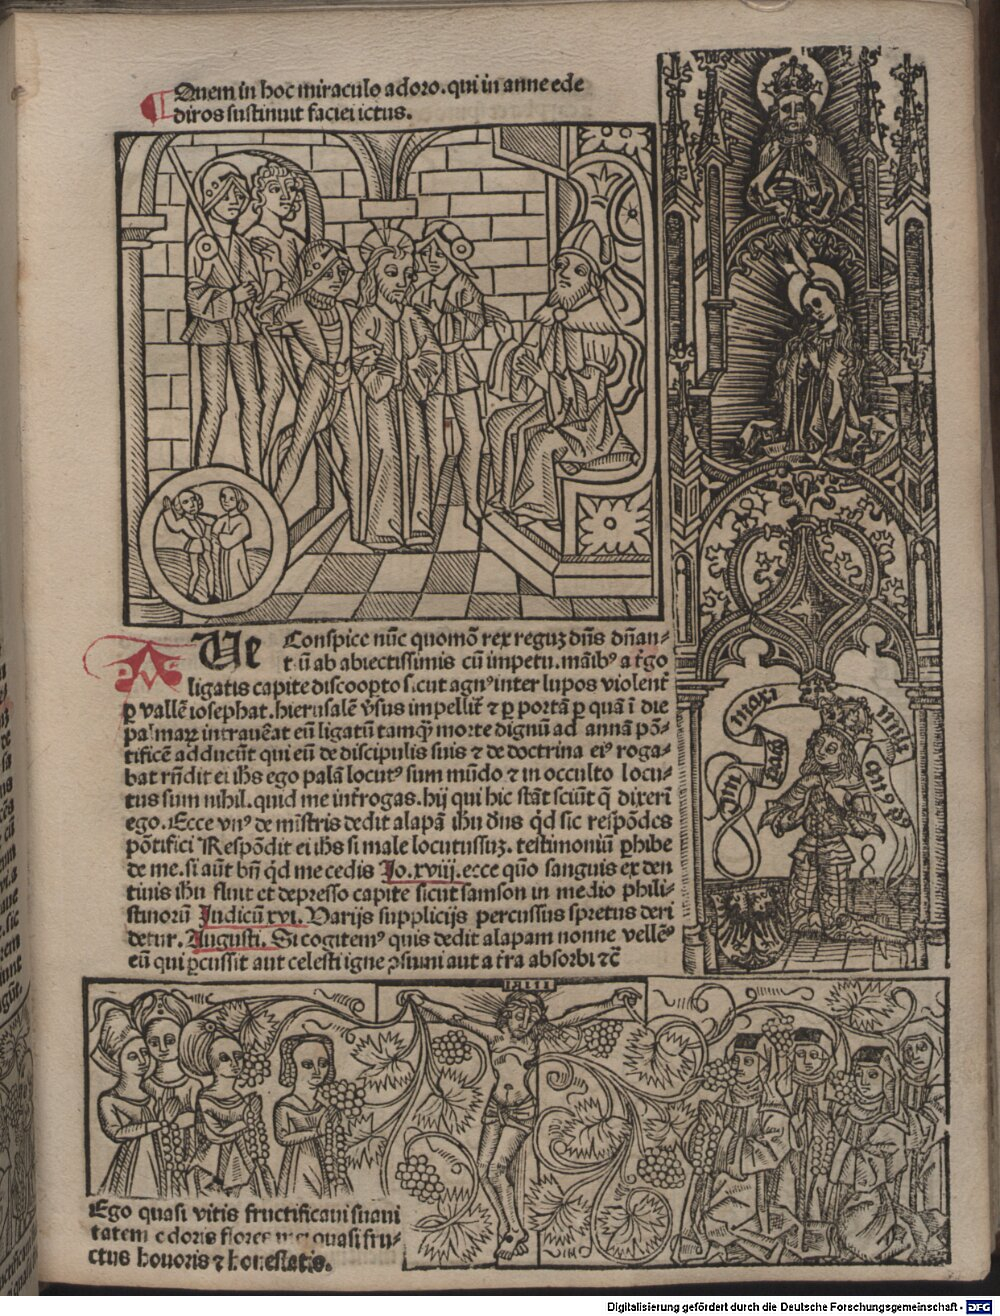 Quem in hoc miraculo adoro. qui in anne ede
diros sustinuit faciei ictus.
AUe Conspice nūc quomō rex regūz dn̄s dn̄an-
tiū ab abiectissimis cū impetu. māibꝰ a tꝰgo
ligatis capite discoopto sicut agnꝰ inter lupos violentꝰ
ꝑ vallē iosephat. hierusalē ꝟsus impellitꝰ ⁊ ꝑ portā ꝑ quā ī die
palmaꝝ intrauēat eū ligatū tamqꝫ morte dignū ad annā pō-
tificē adducūt qui eū de discipulis suis ⁊ de doctrina eiꝰ roga-
bat rn̄dit ei ihs ego palā locutꝰ sum mūdo ⁊ in occulto locu-
tus sum nihil. quid me intꝰrogas. hij qui hic stāt sciūt q̄ dixerī
ego. Ecce vnꝰ de mīstris dedit alapā ihu dn̄s qd̄ sic respōdes
pōtifici Respōdit ei ihs si male locutussuꝫ. testimoniū ꝑhibe
de me. si aūt bn̄ qd̄ me cedis Jo. xviij. ecce quō sanguis ex den
tinis ihu fluit et depresso capite sicut samson in medio phili-
stinorū Judicū xvi. Varijs supplicijs percussus spretus deri
detur. Augusti. Si cogitemꝰ quis dedit alapam nonne vellēꝰ
eū qui ꝑcussit aut celesti igne ꝯsumi aut a tꝰra absorbi ⁊c̄
maxi
mili
anꝰ
Ego quasi vitis fructificaui suaui
tatem odoris flores mei quasi fru-
ctus honoris ⁊ honestatis.
Digitalisierung gefördert durch die Deutsche Forschungsgemeinschaft - DFG